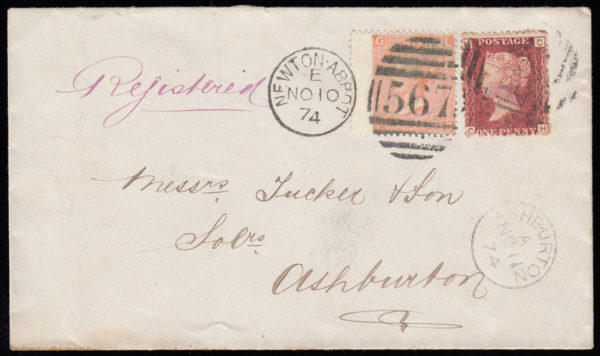 Registered
NEWTON-ABBOT
E
NO 10
74
G L
567
H C
POSTAGE
C H
ONE PENNY
Messrs Tucker & Son
Solrs
Ashburton
ASHBURTON
A
NO 11
74